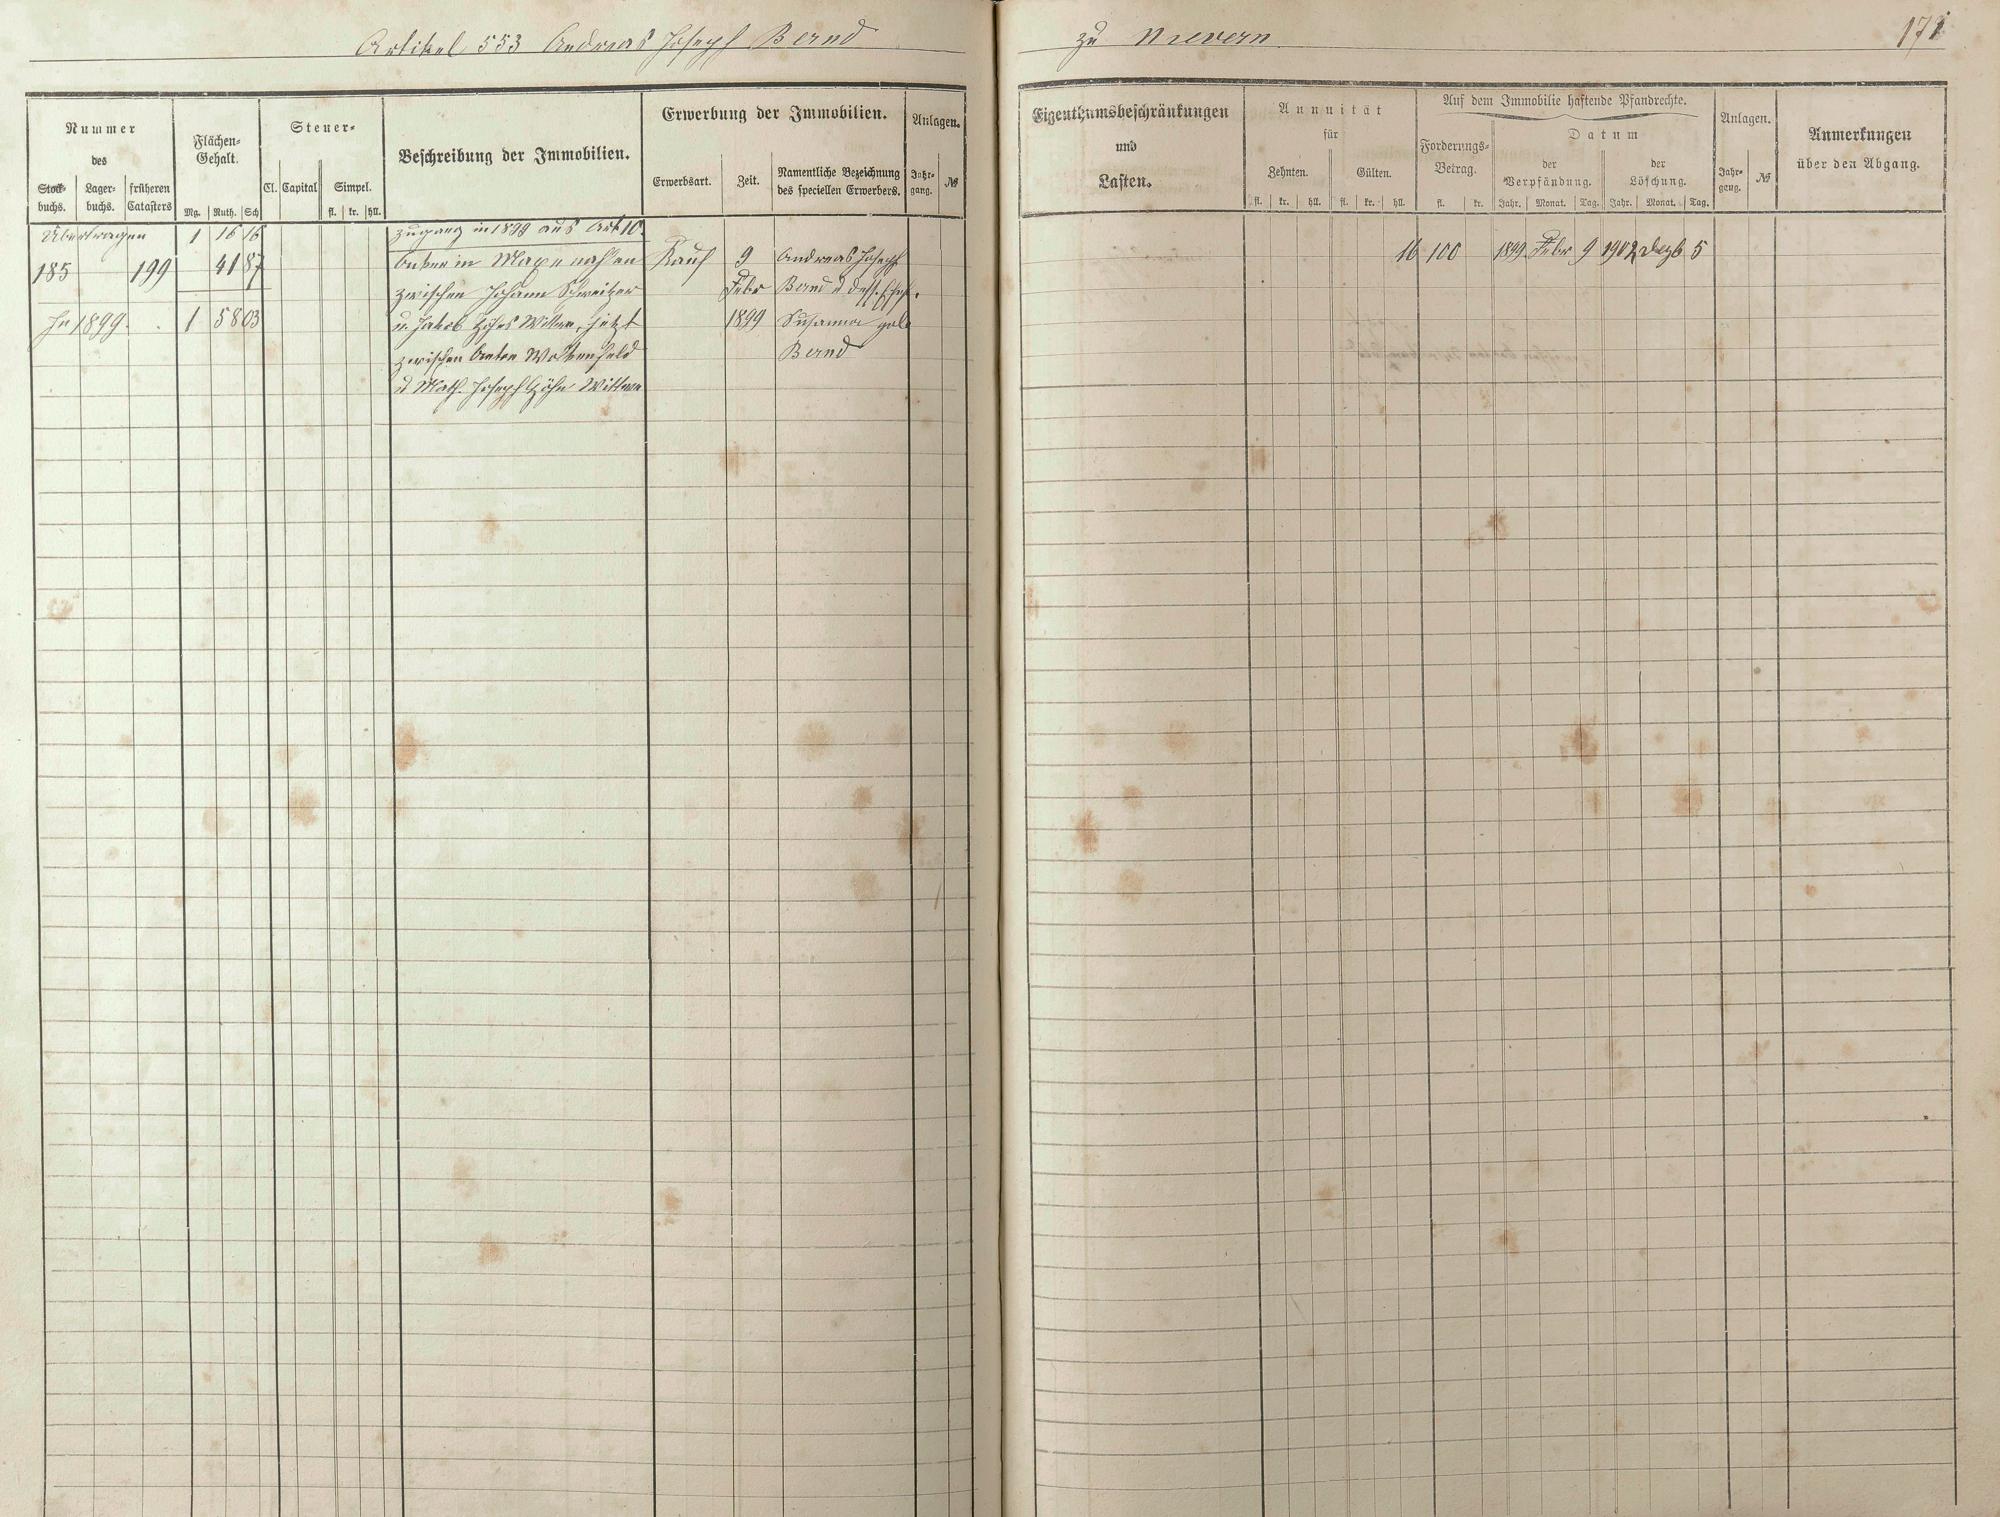 Artikel 553 Andreas Joseph Bernd
zu Nievern
171
Nummer
des
Stock-
buchs.
Lager-
buchs.
früheren
Catasters
Flächen-
Gehalt.
Mg. Ruth. Sch
Steuer-
Cl. Capital Simpel.
fl. kr. hll.
Beschreibung der Immobilien.
Erwerbung der Immobilien.
Erwerbsart. Zeit.
Namentliche Bezeichnung
des speciellen Erwerbers.
Anlagen.
Jahr-
gang.
№
Übertragen 1 16 16
Zugang in 1899 aus Art 10.
185 199 41 87
zwischen Johann Schweitzer
u. Jakob Wittwe, jetzt
zwischen Anton
u Math. Joseph Höhn Wittwe
In 1899. 1 58 03
Kauf
9
Febr
1899
Andreas Joseph
Bernd
Susanna geb
Bernd
Eigenthumsbeschränkungen
und
Lasten.
Annuität
für
Zehnten. Gülten.
fl. kr. hll. fl. kr. hll.
Auf dem Immobilie haftende Pfandrechte.
Forderungs-
Betrag.
fl. kr.
Datum
der
Verpfändung.
Jahr. Monat. Tag.
der
Löschung.
Jahr. Monat. Tag.
Anlagen.
Jahr-
gang.
№
Anmerkungen
über den Abgang.
16 100 1899 Febr 9 1902 Dezb 5